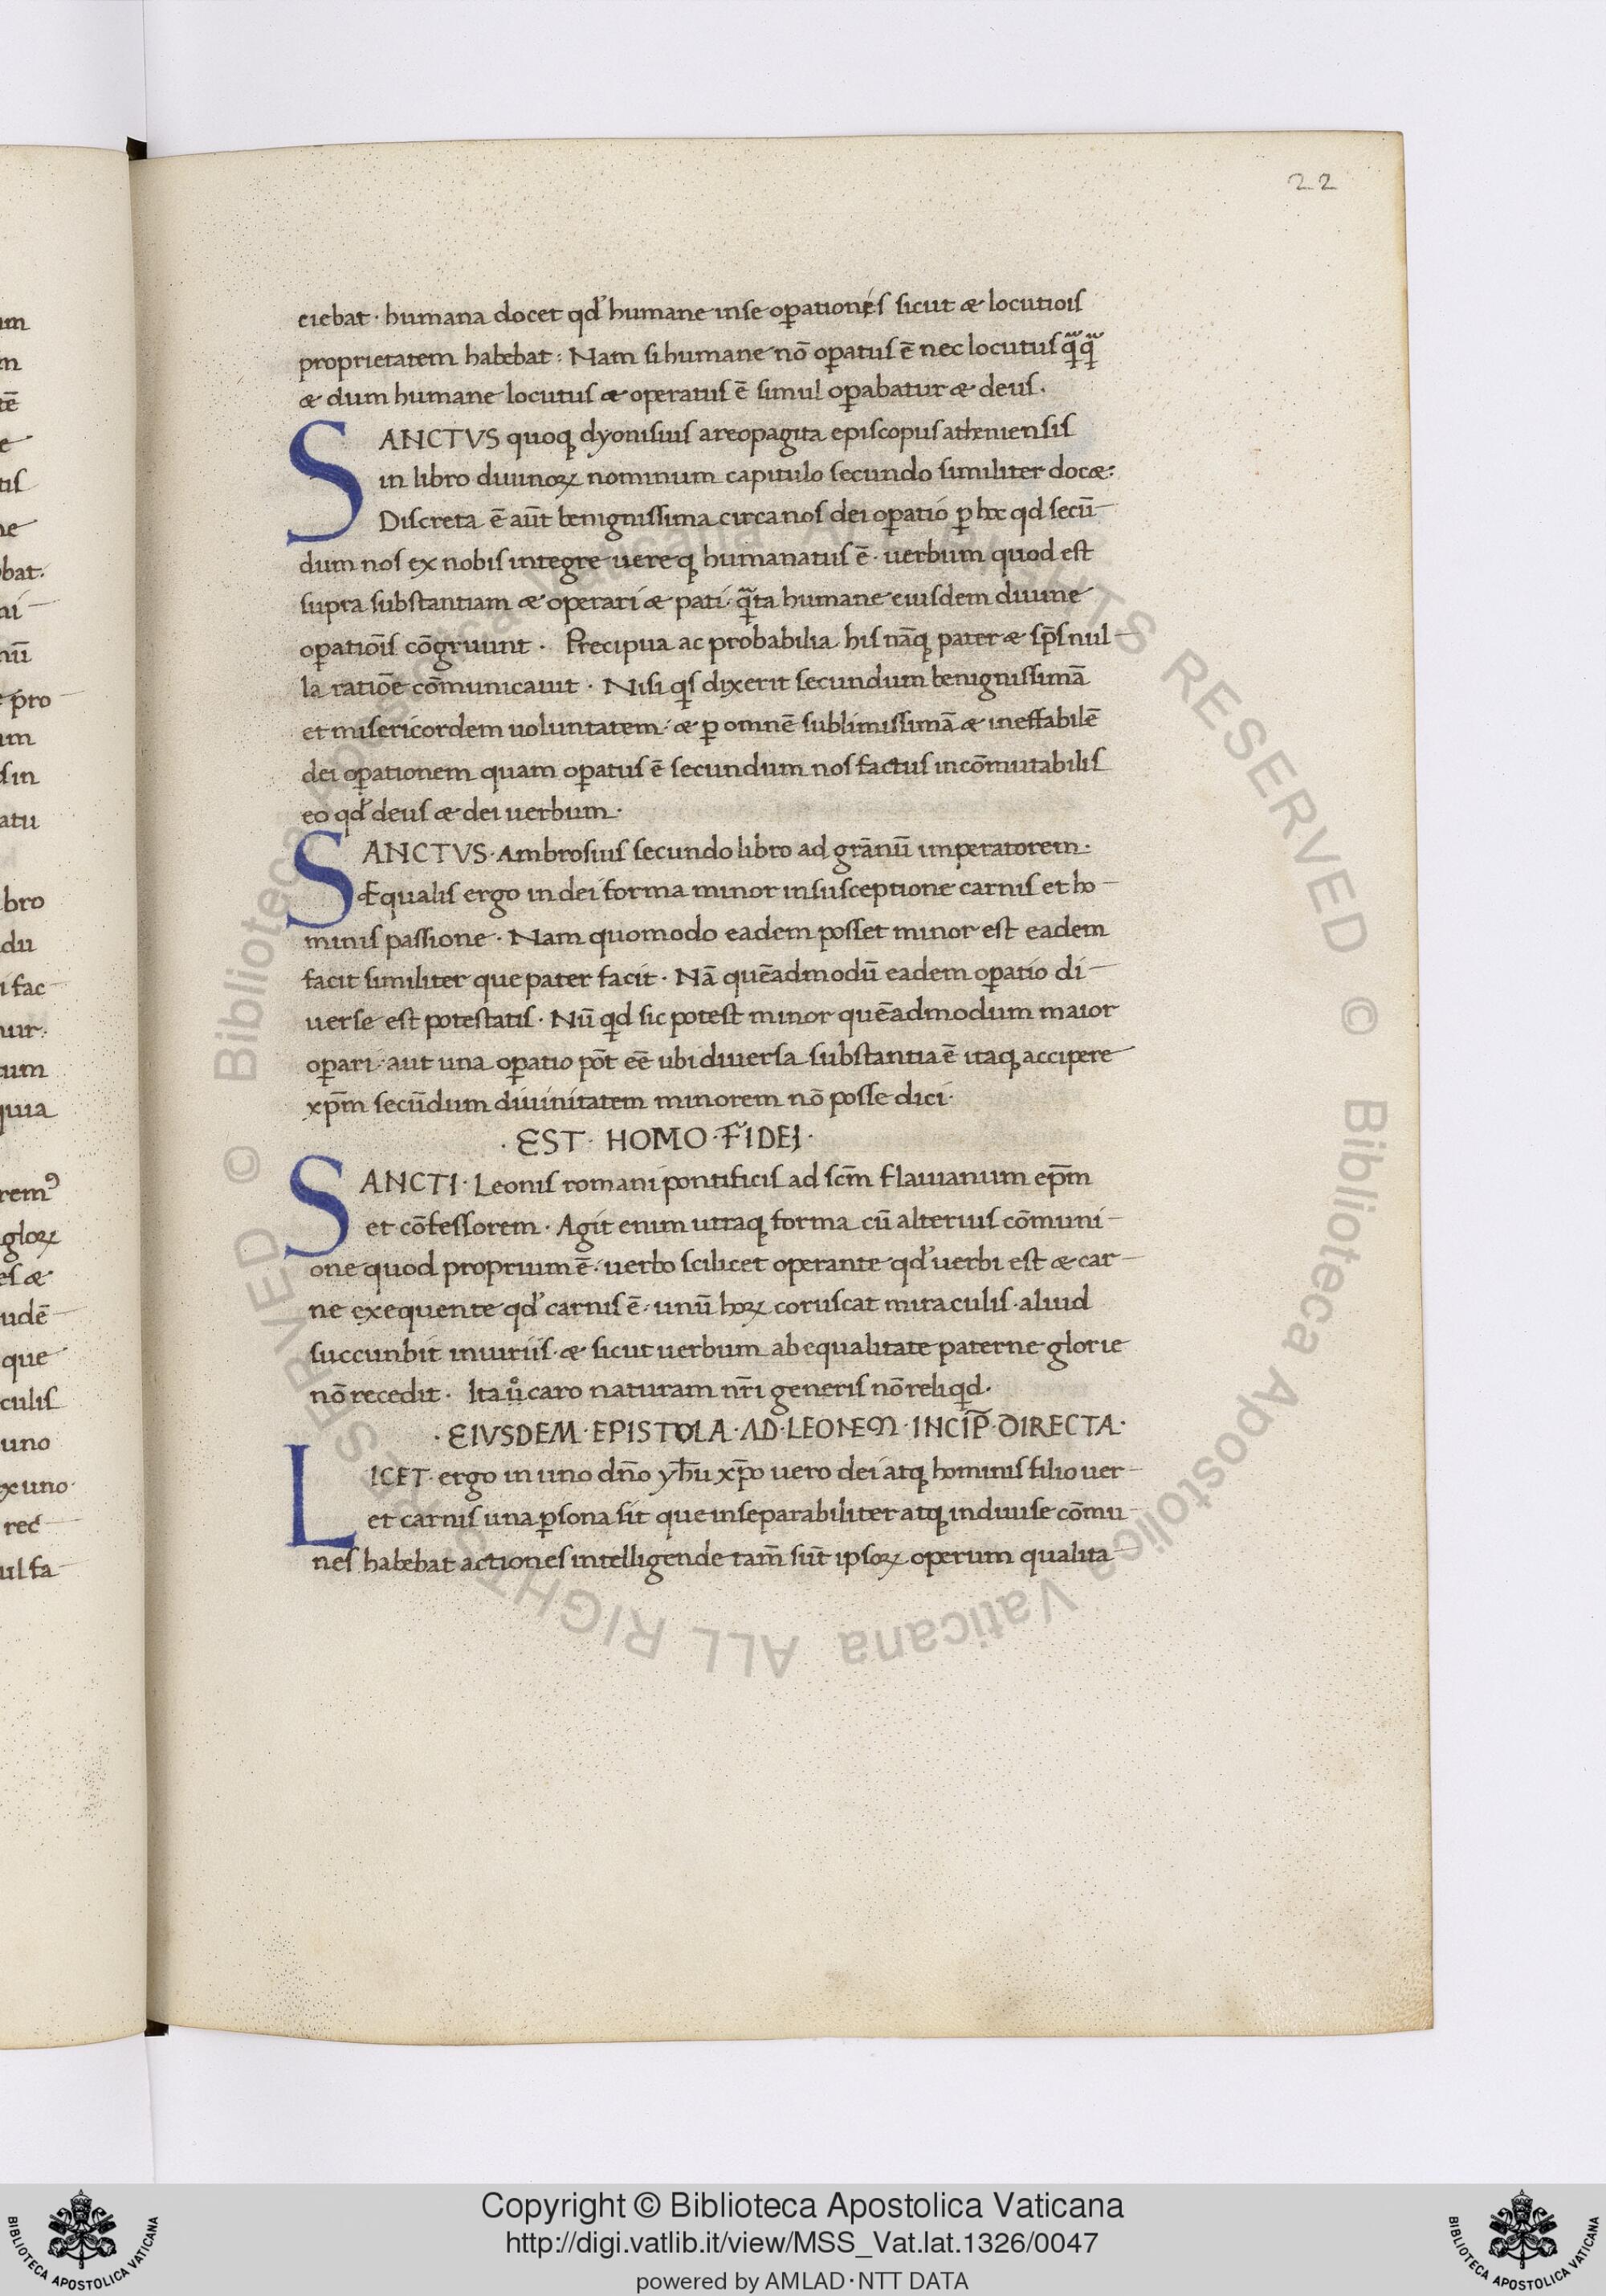 22
eiebat · humana docet qd' humane inse op̄ationes sicut æ locutiois
proprietatem habebat : Nam si humane nō op̄atus ē nec locutus
æ dum humane locutus æ operatus ē simul op̄abatur æ deus .
SANCTVS quoq dyonisius areopagita episcopus atheniensis
in libro diuinoꝝ nominum capitulo secundo similiter docæ :
Discreta ē aūt benignissima circa nos dei op̄atio ꝑ hoc qd secū-
dum nos ex nobis integre uereq humanatus ē · uerbum quod est
supra substantiam æ operari æ pati · q̄ta humane eiusdem diuine
op̄atiōis cōgruunt · Precipua ac probabilia his nāq pater æ sp̄s nul-
la ratiōe cōmunicauit · Nisi qs dixerit secundum benignissimā
et misericordem uoluntatem · æ ꝑ omnē sublimissimā æ ineffabilē
dei op̄ationem quam op̄atus ē secundum nos factus incōmutabilis
eo qd' deus æ dei uerbum ·
SANCTVS · Ambrosius secundo libro ad grānū imperatorem ·
Equalis ergo in dei forma minor in susceptione carnis et ho-
minis passione · Nam quomodo eadem posset minor est eadem
facit similiter que pater facit · Nā quēadmodū eadem op̄atio di-
uerse est potestatis · Nū qd sic potest minor quēadmodum maior
op̄ari · aut una op̄atio pōt eē ubi diuersa substantia ē itaq accipere
xp̄m secūdum diuinitatem minorem nō posse dici ·
· EST · HOMO · FIDEI ·
SANCTI · Leonis romani pontificis ad scm̄ flauianum ep̄m
et cōfessorem · Agit enim utraq forma cū alterius cōmuni-
one quod proprium ē · uerbo scilicet operante qd' uerbi est æ car-
ne exequente qd' carnis ē · unū hoꝝ coruscat miraculis · aliud
succunbit iniuriis · æ sicut uerbum ab equalitate paterne glorie
nō recedit · Ita ů caro naturam nr̄i generis nō reliqd ·
· EIVSDEM · EPISTOLA · AD · LEONEM · INCIP̄ · DIRECTA ·
LICET · ergo in uno dn̄o yh̄u xp̄o uero dei atq hominis filio uer-
et carnis una ꝑsona sit que inseparabiliter atq indiuise cōmu-
nes habebat actiones intelligende tam̄ sūt ipsoꝝ operum qualita-
Copyright © Biblioteca Apostolica Vaticana
http://digi.vatlib.it/view/MSS_Vat.lat.1326/0047
powered by AMLAD·NTT DATA